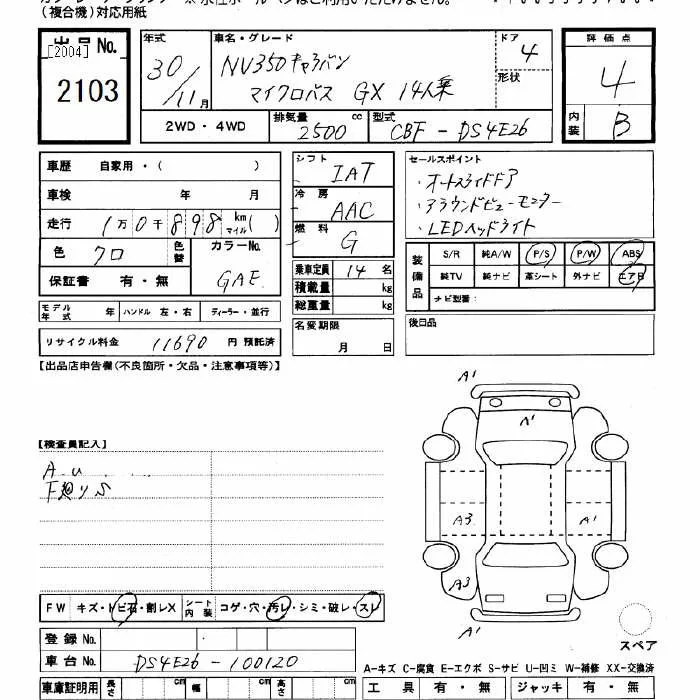 （複合機）対応用紙
出品No.
[2004]
2103
年式
30/11月
車名・グレード
NV350キャラバン
マイクロバス GX 14人乗
ドア
4
形状
2WD・4WD
排気量
2500 cc
型式
CBF-DS4E26
評価点
4
内装
B
車歴 自家用・（ ）
車検 年 月
走行 1万0千898 km マイル（ ）
色 クロ
色替
カラーNo.
GAE
保証書 有・無
モデル年式 年 ハンドル 左・右 ディーラー・並行
リサイクル料金 11690 円 預託済
シフト
IAT
冷房
AAC
燃料
G
乗車定員 14 名
積載量 kg
総重量 kg
名変期限
月 日
セールスポイント
・オートスライドドア
・アラウンドビューモニター
・LEDヘッドライト
装備品
S/R 純A/W P/S P/W ABS
純TV 純ナビ 革シート 外ナビ エアB
ナビ型番：
後日品
【出品店申告欄(不良箇所・欠品・注意事項等)】
【検査員記入】
A.u.....
F廻りS
A1
A1
A3
A1
A3
A1
スペア
FW キズ・トビ石・割レX シート内装 コゲ・穴・汚レ・シミ・破レ・スレ
登録No.
車台No. DS4E26-100120
A-キズ C-腐食 E-エクボ S-サビ U-凹ミ W-補修 XX-交換済
車庫証明用 長さ cm 幅 cm 高さ cm
工具 有・無 ジャッキ 有・無